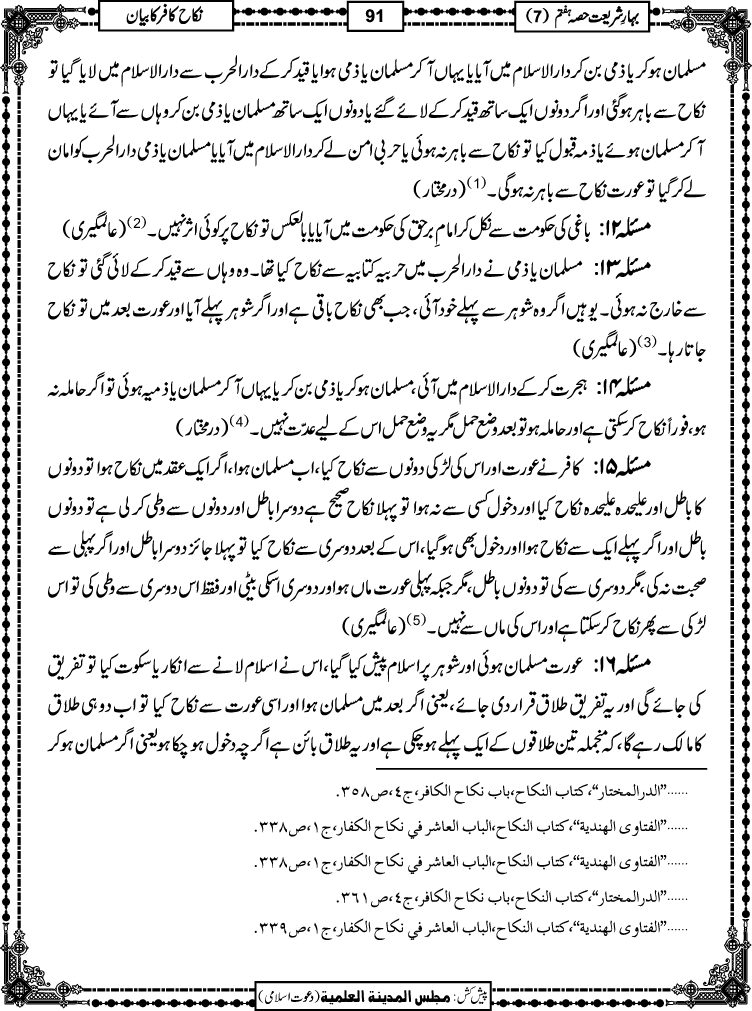 بہارِ شریعت حصہ ہفتم (7)
91
نکاح کافر کا بیان
مسلمان ہوکر یا ذمی بن کر دارالاسلام میں آیا یا یہاں آکر مسلمان یا ذمی ہوا یا قید کرکے دارالحرب سے دارالاسلام میں لایا گیا تو
نکاح سے باہر ہوگئی اور اگر دونوں ایک ساتھ قید کرکے لائے گئے یا دونوں ایک ساتھ مسلمان یا ذمی بن کر وہاں سے آئے یا یہاں
آکر مسلمان ہوئے یا ذمہ قبول کیا تو نکاح سے باہر نہ ہوئی یا حربی امن لے کر دارالاسلام میں آیا یا مسلمان یا ذمی دارالحرب کو امان
لے کر گیا تو عورت نکاح سے باہر نہ ہوگی۔(1) (درمختار)
مسئلہ ۱۲: باغی کی حکومت سے نکل کر امامِ برحق کی حکومت میں آیا یا بالعکس تو نکاح پر کوئی اثر نہیں۔(2) (عالمگیری)
مسئلہ ۱۳: مسلمان یا ذمی نے دارالحرب میں حربیہ کتابیہ سے نکاح کیا تھا۔ وہ وہاں سے قید کرکے لائی گئی تو نکاح
سے خارج نہ ہوئی۔ یوہیں اگر وہ شوہر سے پہلے خود آئی، جب بھی نکاح باقی ہے اور اگر شوہر پہلے آیا اور عورت بعد میں تو نکاح
جاتا رہا۔(3) (عالمگیری)
مسئلہ ۱۴: ہجرت کرکے دارالاسلام میں آئی، مسلمان ہوکر یا ذمی بن کر یا یہاں آکر مسلمان یا ذمیہ ہوئی تو اگر حاملہ نہ
ہو، فوراً نکاح کرسکتی ہے اور حاملہ ہو تو بعد وضع حمل مگر یہ وضع حمل اس کے لیے عدّت نہیں۔(4) (درمختار)
مسئلہ ۱۵: کافر نے عورت اور اس کی لڑکی دونوں سے نکاح کیا، اب مسلمان ہوا، اگر ایک عقد میں نکاح ہوا تو دونوں
کا باطل اور علیحدہ علیحدہ نکاح کیا اور دخول کسی سے نہ ہوا تو پہلا نکاح صحیح ہے دوسرا باطل اور دونوں سے وطی کرلی ہے تو دونوں
باطل اور اگر پہلے ایک سے نکاح ہوا اور دخول بھی ہوگیا، اس کے بعد دوسری سے نکاح کیا تو پہلا جائز دوسرا باطل اور اگر پہلی سے
صحبت نہ کی، مگر دوسری سے کی تو دونوں باطل، مگر جبکہ پہلی عورت ماں ہو اور دوسری اسکی بیٹی اور فقط اس دوسری سے وطی کی تو اس
لڑکی سے پھر نکاح کرسکتا ہے اور اس کی ماں سے نہیں۔(5) (عالمگیری)
مسئلہ ۱۶: عورت مسلمان ہوئی اور شوہر پر اسلام پیش کیا گیا، اس نے اسلام لانے سے انکار یا سکوت کیا تو تفریق
کی جائے گی اور یہ تفریق طلاق قرار دی جائے، یعنی اگر بعد میں مسلمان ہوا اور اسی عورت سے نکاح کیا تو اب دو ہی طلاق
کا مالک رہے گا، کہ منجملہ تین طلاقوں کے ایک پہلے ہوچکی ہے اور یہ طلاق بائن ہے اگرچہ دخول ہوچکا ہو یعنی اگر مسلمان ہوکر
......”الدرالمختار“،کتاب النکاح،باب نکاح الکافر،ج٤،ص٣٥٨.
......”الفتاوی الھندیة“،کتاب النکاح،الباب العاشر في نکاح الکفار،ج١،ص٣٣٨.
......”الفتاوی الھندیة“،کتاب النکاح،الباب العاشر في نکاح الکفار،ج١،ص٣٣٨.
......”الدرالمختار“،کتاب النکاح،باب نکاح الکافر،ج٤،ص٣٦١.
......”الفتاوی الھندیة“،کتاب النکاح،الباب العاشر في نکاح الکفار،ج١،ص٣٣٩.
پیش کش: مجلس المدینة العلمیة (دعوت اسلامی)